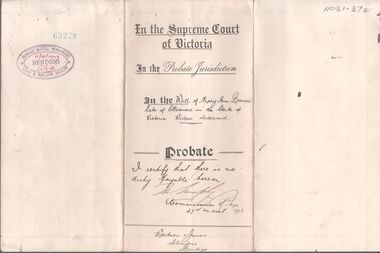 11031.37a
63278
BENDIGO
In the Supreme Court
of Victoria
In the Probate Jurisdiction
In the Will of Mary Ann Brown
late of Ellesmere in the State of
Victoria Widow deceased
Probate
I certify that there is no
duty payable hereon
Commissioner of Taxes
27th March 1913
Watson & James
Solicitors
Bendigo